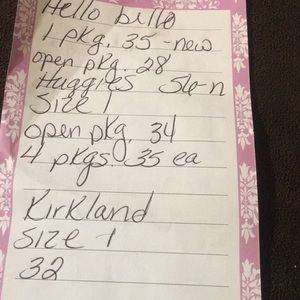 Hello bello
1 pkg. 35 -new
open pkg. 28
Huggies
Size 1
open pkg. 34
4 pkgs. 35 ea
Kirkland
Size 1
32